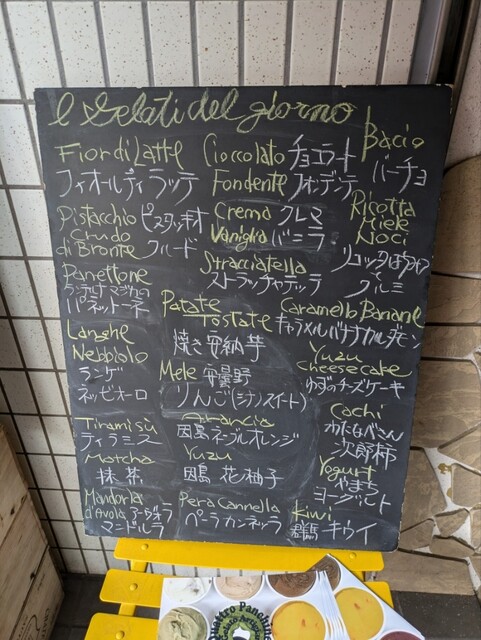 I Gelati del giorno
Fior di Latte
フィオールディラッテ
Pistacchio ピスタッキオ
Crudo
di Bronte クルード
Panettone
パネットーネ
Langhe
Nebbiolo
ランゲ
ネッビオーロ
Tiramisù
ティラミス
Matcha
抹茶
Mandorla
d'Avola アーヴォラ
マンドルラ
Cioccolato チョコラート
Fondente フォンデンテ
Crema クレマ
Vaniglia バニラ
Stracciatella
ストラッチャテッラ
Patate
Tostate
焼き安納芋
Mele 安曇野
りんご(シナノスイート)
Arancia
因島ネーブルオレンジ
Yuzu
因島 花柚子
Pera Cannella
ペーラカンネッラ
Bacio
バーチョ
Ricotta
Miele
Noci
リコッタはちみつ
クルミ
Caramello Banane
キャラメルバナナカルダモン
Yuzu
cheesecake
ゆずのチーズケーキ
Cachi
わたなべさん
次郎柿
Yogurt
やまち
ヨーグルト
kiwi
群馬 キウイ